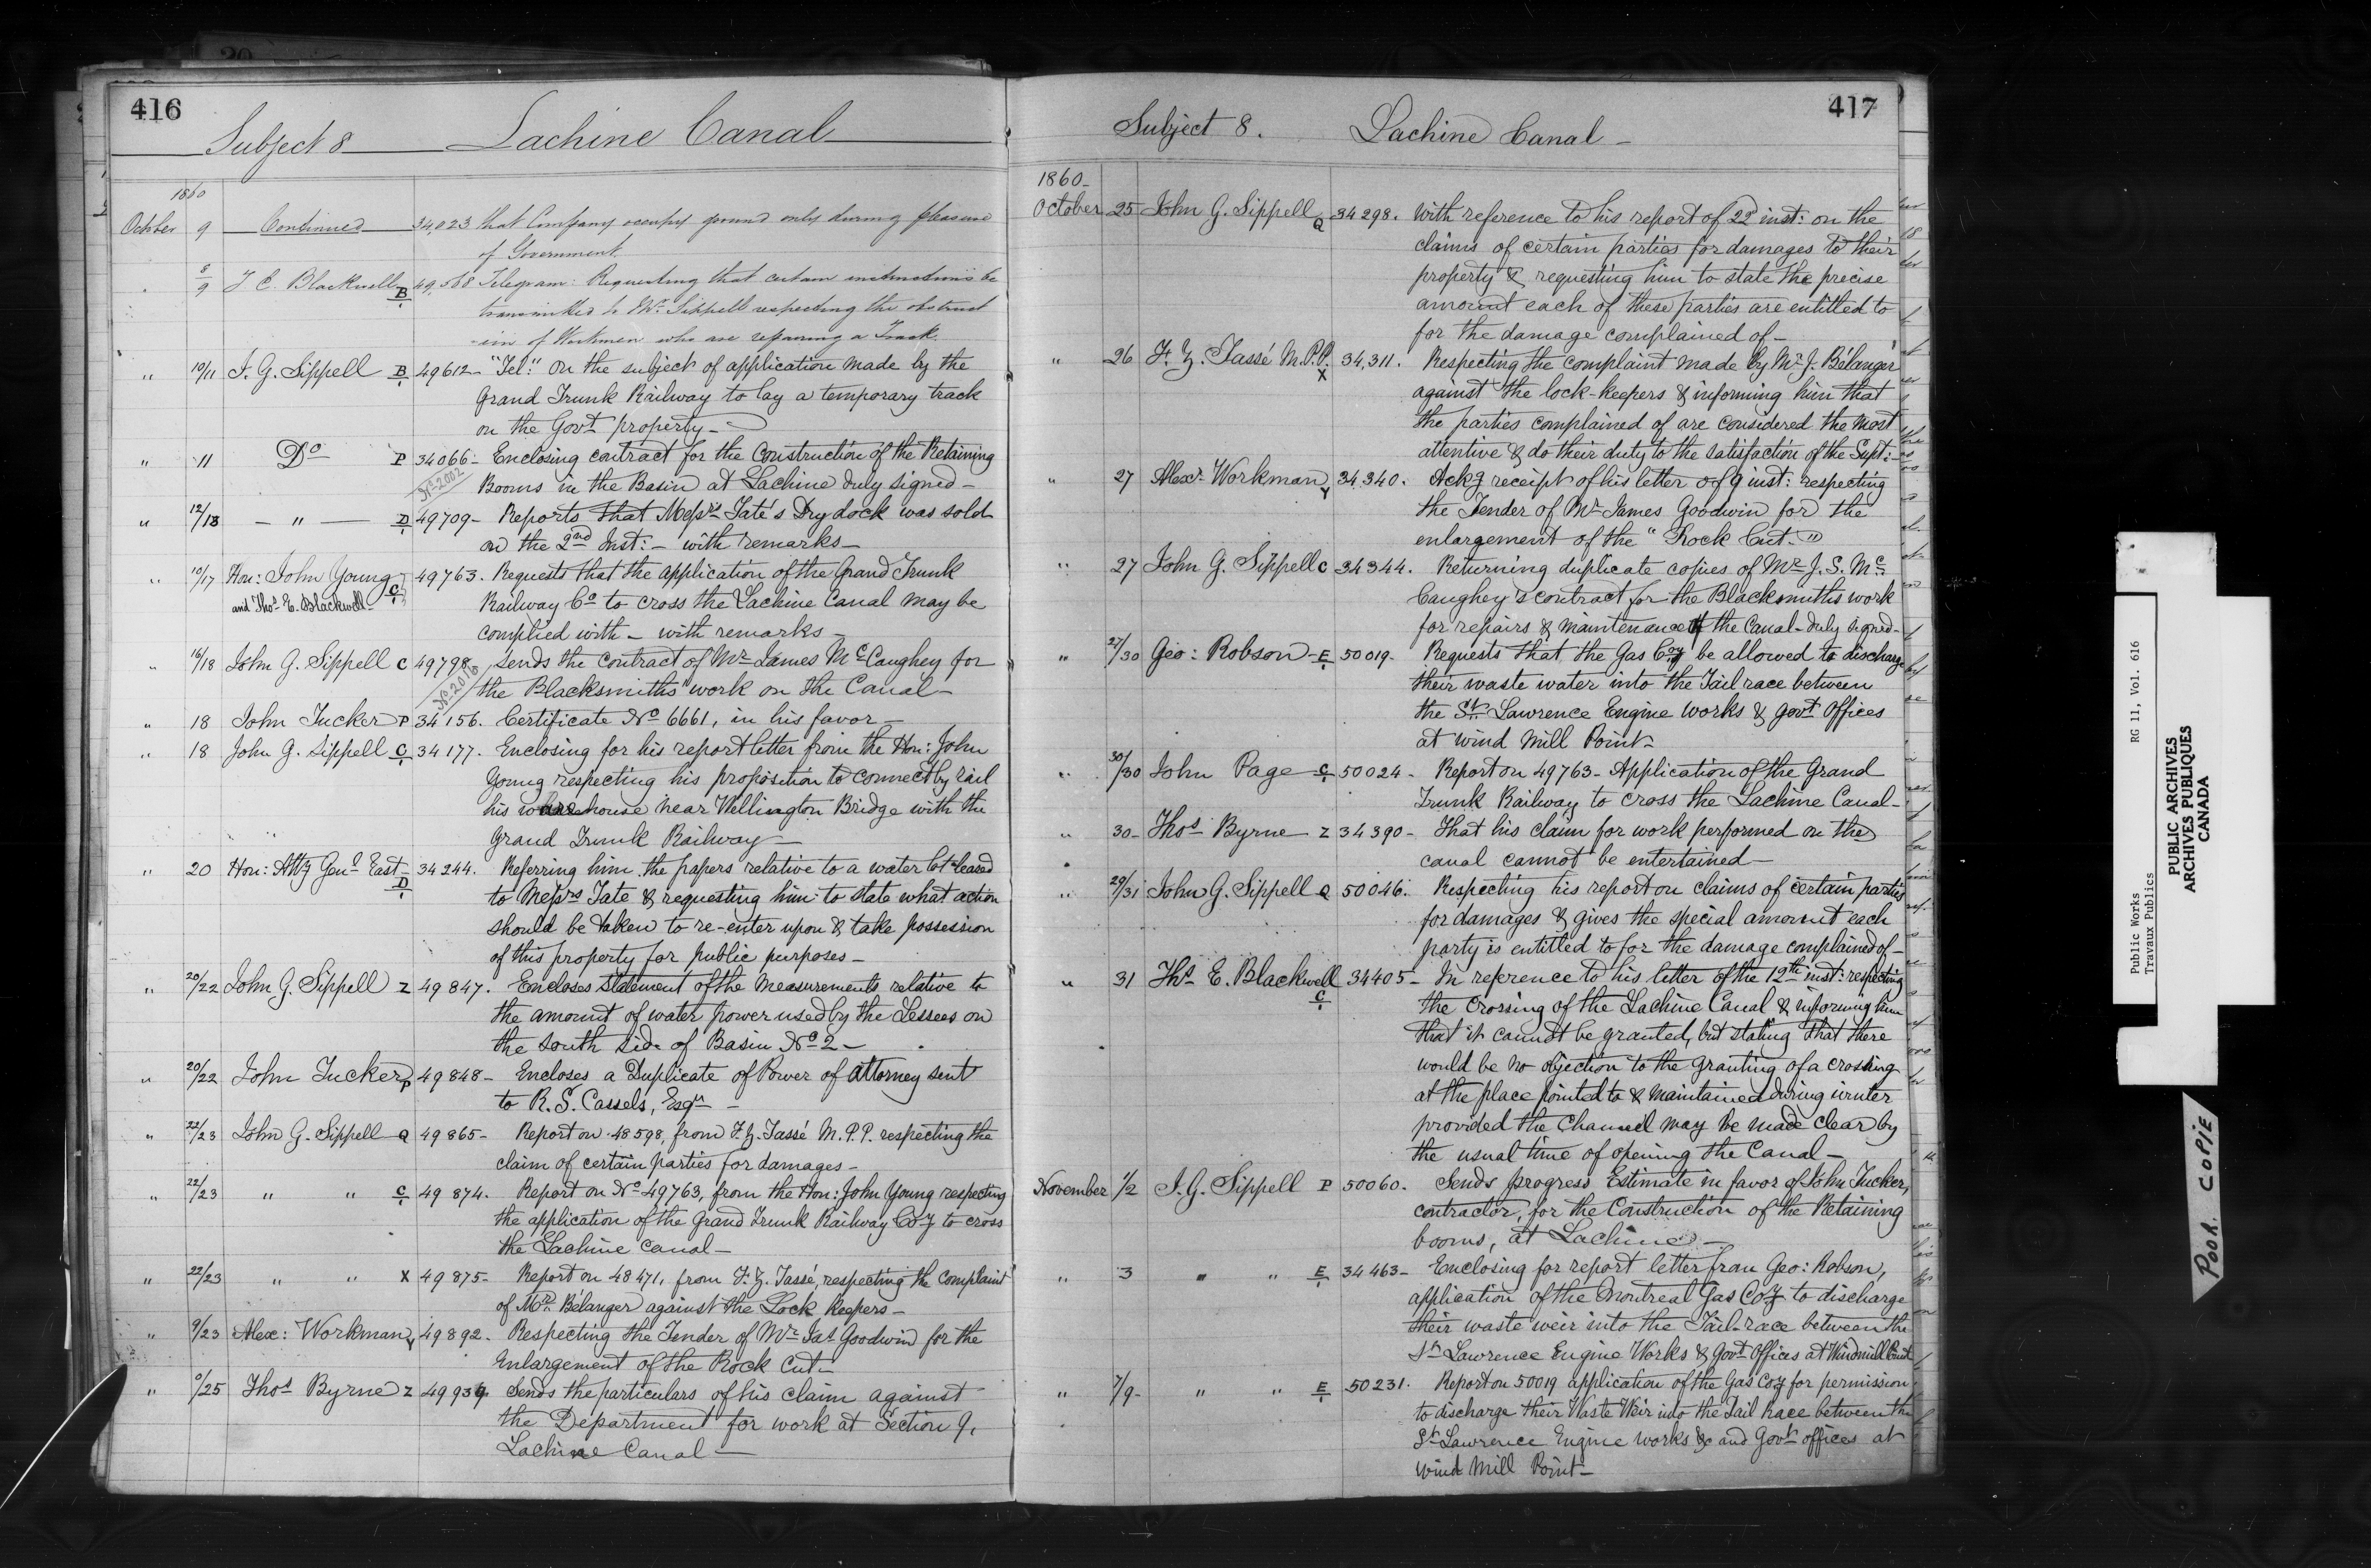 416
Subject 8 Lachine Canal
1860
October 9 Continued 34,023 that Company occupy ground only during pleasure
of Government
" 8/9 T. E. Blackwell B 49,568 Telegram: Requesting that certain instructions be
transmitted to Mr. Sippell respecting the obstruct
-ion of Workmen who are repairing a Track.
" 10/11 J. G. Sippell B 49612- "Tel:" on the subject of application made by the
Grand Trunk Railway to lay a temporary track
on the Govt property-
" 11 Do P 34066- Enclosing contract for the Construction of the Retaining
No 2002
Booms in the Basin at Lachine duly signed-
" 12/13 - " - D 49709- Reports that Messrs Tate's Dry dock was sold
on the 2nd Inst:- with remarks-
" 10/17 Hon: John Young C 49763. Requests that the application of the Grand Trunk
and Thos E. Blackwell-
Railway Co to cross the Lachine Canal may be
complied with- with remarks-
" 16/18 John G. Sippell C 49798 Sends the contract of Mr James McCaughey for
No 2010
the Blacksmiths" work on the Canal-
" 18 John Tucker P 34156. Certificate No 6661, in his favor-
" 18 John G. Sippell C 34177. Enclosing for his report letter from the Hon: John
Young respecting his proposition to connect by rail
his warehouse near Wellington Bridge with the
Grand Trunk Railway-
" 20 Hon: Atty Genl East- D 34244. Referring him the papers relative to a water lot leased
to Messrs Tate & requesting him to state what action
should be taken to re-enter upon & take possession
of this property for public purposes-
" 20/22 John G. Sippell Z 49847. Encloses statement of the measurements relative to
the amount of water power used by the Lessees on
the south side of Basin No 2-
" 20/22 John Tucker P 49848- Encloses a Duplicate of Power of attorney sent
to R. S. Cassels, Esqr-
" 22/23 John G. Sippell Q 49865- Report on 48598, from F. Z. Tassé M.P.P. respecting the
claim of certain parties for damages-
" 22/23 " " C 49874. Report on No 49763, from the Hon: John Young respecting
the application of the Grand Trunk Railway Coy to cross
the Lachine Canal-
" 22/23 " " X 49875- Report on 48471, from F. Z. Tassé, respecting the complaint
of Mr. Bélanger against the Lock Keepers-
" 9/23 Alex: Workman Y 49892. Respecting the Tender of Mr Jas Goodwin for the
Enlargement of the Rock Cut-
" 9/25 Thos Byrne Z 49939 Sends the particulars of his claim against
the Department for work at Section 9,
Lachine Canal-
417
Subject 8. Lachine Canal-
1860-
October 25 John G. Sippell Q 34298. With reference to his report of 22d inst: on the
claims of certain parties for damages to their
property & requesting him to state the precise
amount each of these parties are entitled to
for the damage complained of-
" 26 F. Z. Tassé M.P.P. X 34,311. Respecting the complaint made by Mr J. Bélanger
against the lock-keepers & informing him that
the parties complained of are considered the most
attentive & do their duty to the satisfaction of the Supt:-
" 27 Alexr Workman Y 34340. Ackg receipt of his letter of 9 inst: respecting
the Tender of Mr James Goodwin for the
enlargement of the "Rock Cut."
" 27 John G. Sippell C 34344. Returning duplicate copies of Mr J. S. Mc
Caughey's contract for the Blacksmiths work
for repairs & maintenance of the Canal- duly signed-
" 27/30 Geo: Robson- E 50019. Requests that the Gas Coy be allowed to discharge
their waste water into the Tail race between
the St. Lawrence Engine works & govt offices
at wind Mill Point-
" 30/30 John Page C 50024- Report on 49763- Application of the Grand
Trunk Railway to cross the Lachine Canal-
" 30- Thos Byrne Z 34390- That his claim for work performed on the
canal cannot be entertained-
" 29/31 John G. Sippell Q 50046. Respecting his report on claims of certain parties
for damages & gives the special amount each
party is entitled to for the damage complained of-
" 31 Ths E. Blackwell C 34405- In reference to his letter of the 12th inst: respecting
the crossing of the Lachine Canal & informing him
that it cannot be granted, but stating that there
would be no objection to the granting of a crossing
at the place pointed to & maintained during winter
provided the Channel may be made clear by
the usual time of opening the Canal-
November 1/2 J. G. Sippell P 50060. Sends progress Estimate in favor of John Tucker,
contractor, for the Construction of the Retaining
booms, at Lachine-
" 3 " " E 34463- Enclosing for report letter from Geo: Robson,
application of the Montreal Gas Coy to discharge
their waste weir into the Tail-race between the
St Lawrence Engine Works & Govt Offices at Windmill Point
" 7/9- " " E 50231. Report on 50019 application of the Gas Coy for permission
to discharge their Waste Weir into the Tail Race between the
St Lawrence Engine works &c and Govt offices at
Wind Mill Point-
Public Works RG 11, Vol. 616
Travaux Publics
PUBLIC ARCHIVES
ARCHIVES PUBLIQUES
CANADA
POOR COPIE